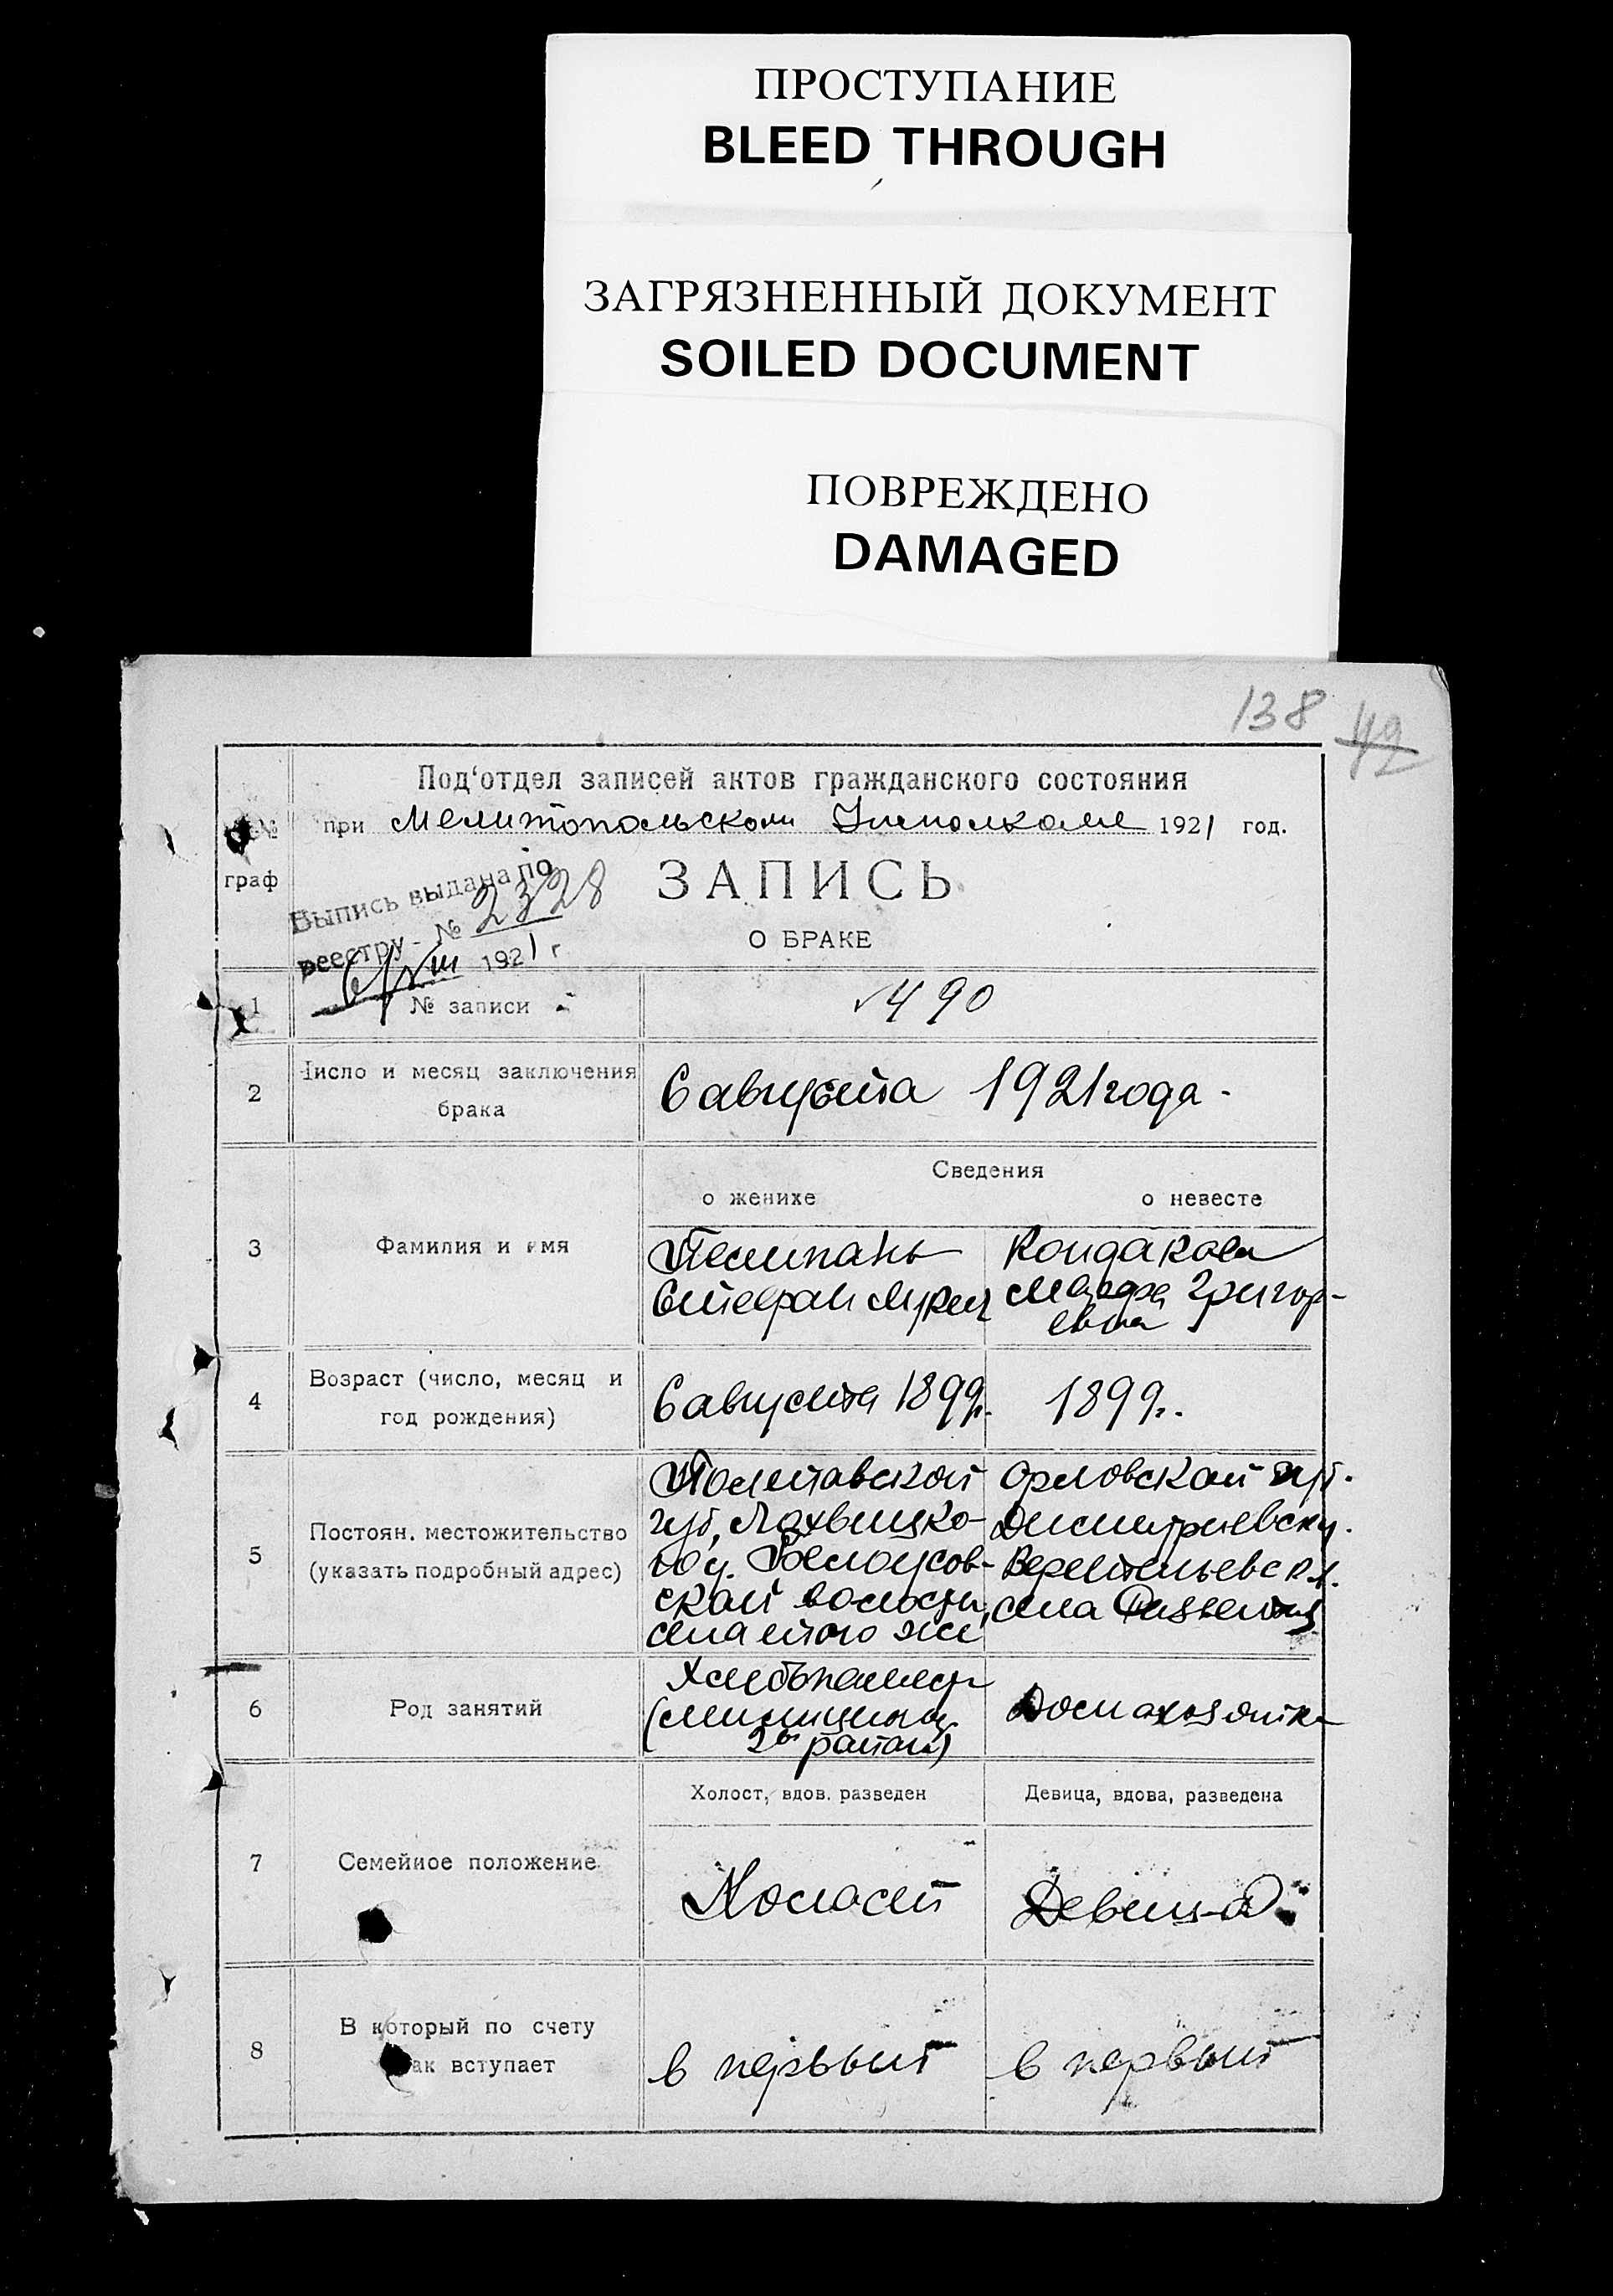 ПРОСТУПАНИЕ
BLEED THROUGH
ЗАГРЯЗНЕННЫЙ ДОКУМЕНТ
SOILED DOCUMENT
ПОВРЕЖДЕНО
DAMAGED
138 49
Под‘отдел записей актов гражданского состояния
при Мелитопольском Исполкоме 1921 год.
№ граф
Выпись выдана по
реестру № 2328
6/VIII 1921 г
ЗАПИСЬ
О БРАКЕ
1 № записи 490
2 Число и месяц заключения брака
6 августа 1921 года -
Сведения
о женихе о невесте
3 Фамилия и имя
Стефан Кондакова
Григор-
евна
4 Возраст (число, месяц и год рождения)
6 августа 1899г. 1899г.
5 Постоян. местожительство (указать подробный адрес)
Полтавской Орловской губ.
губ, Лохвицко- Дмитриевск у.
го у. Белоусов-
ской волости, села
села того же
6 Род занятий
Хлебопашец
(милиционер Домохозяйка
2го района)
Холост, вдов. разведен Девица, вдова, разведена
7 Семейное положение
Холост Девица
8 В который по счету
брак вступает
в первый в первый